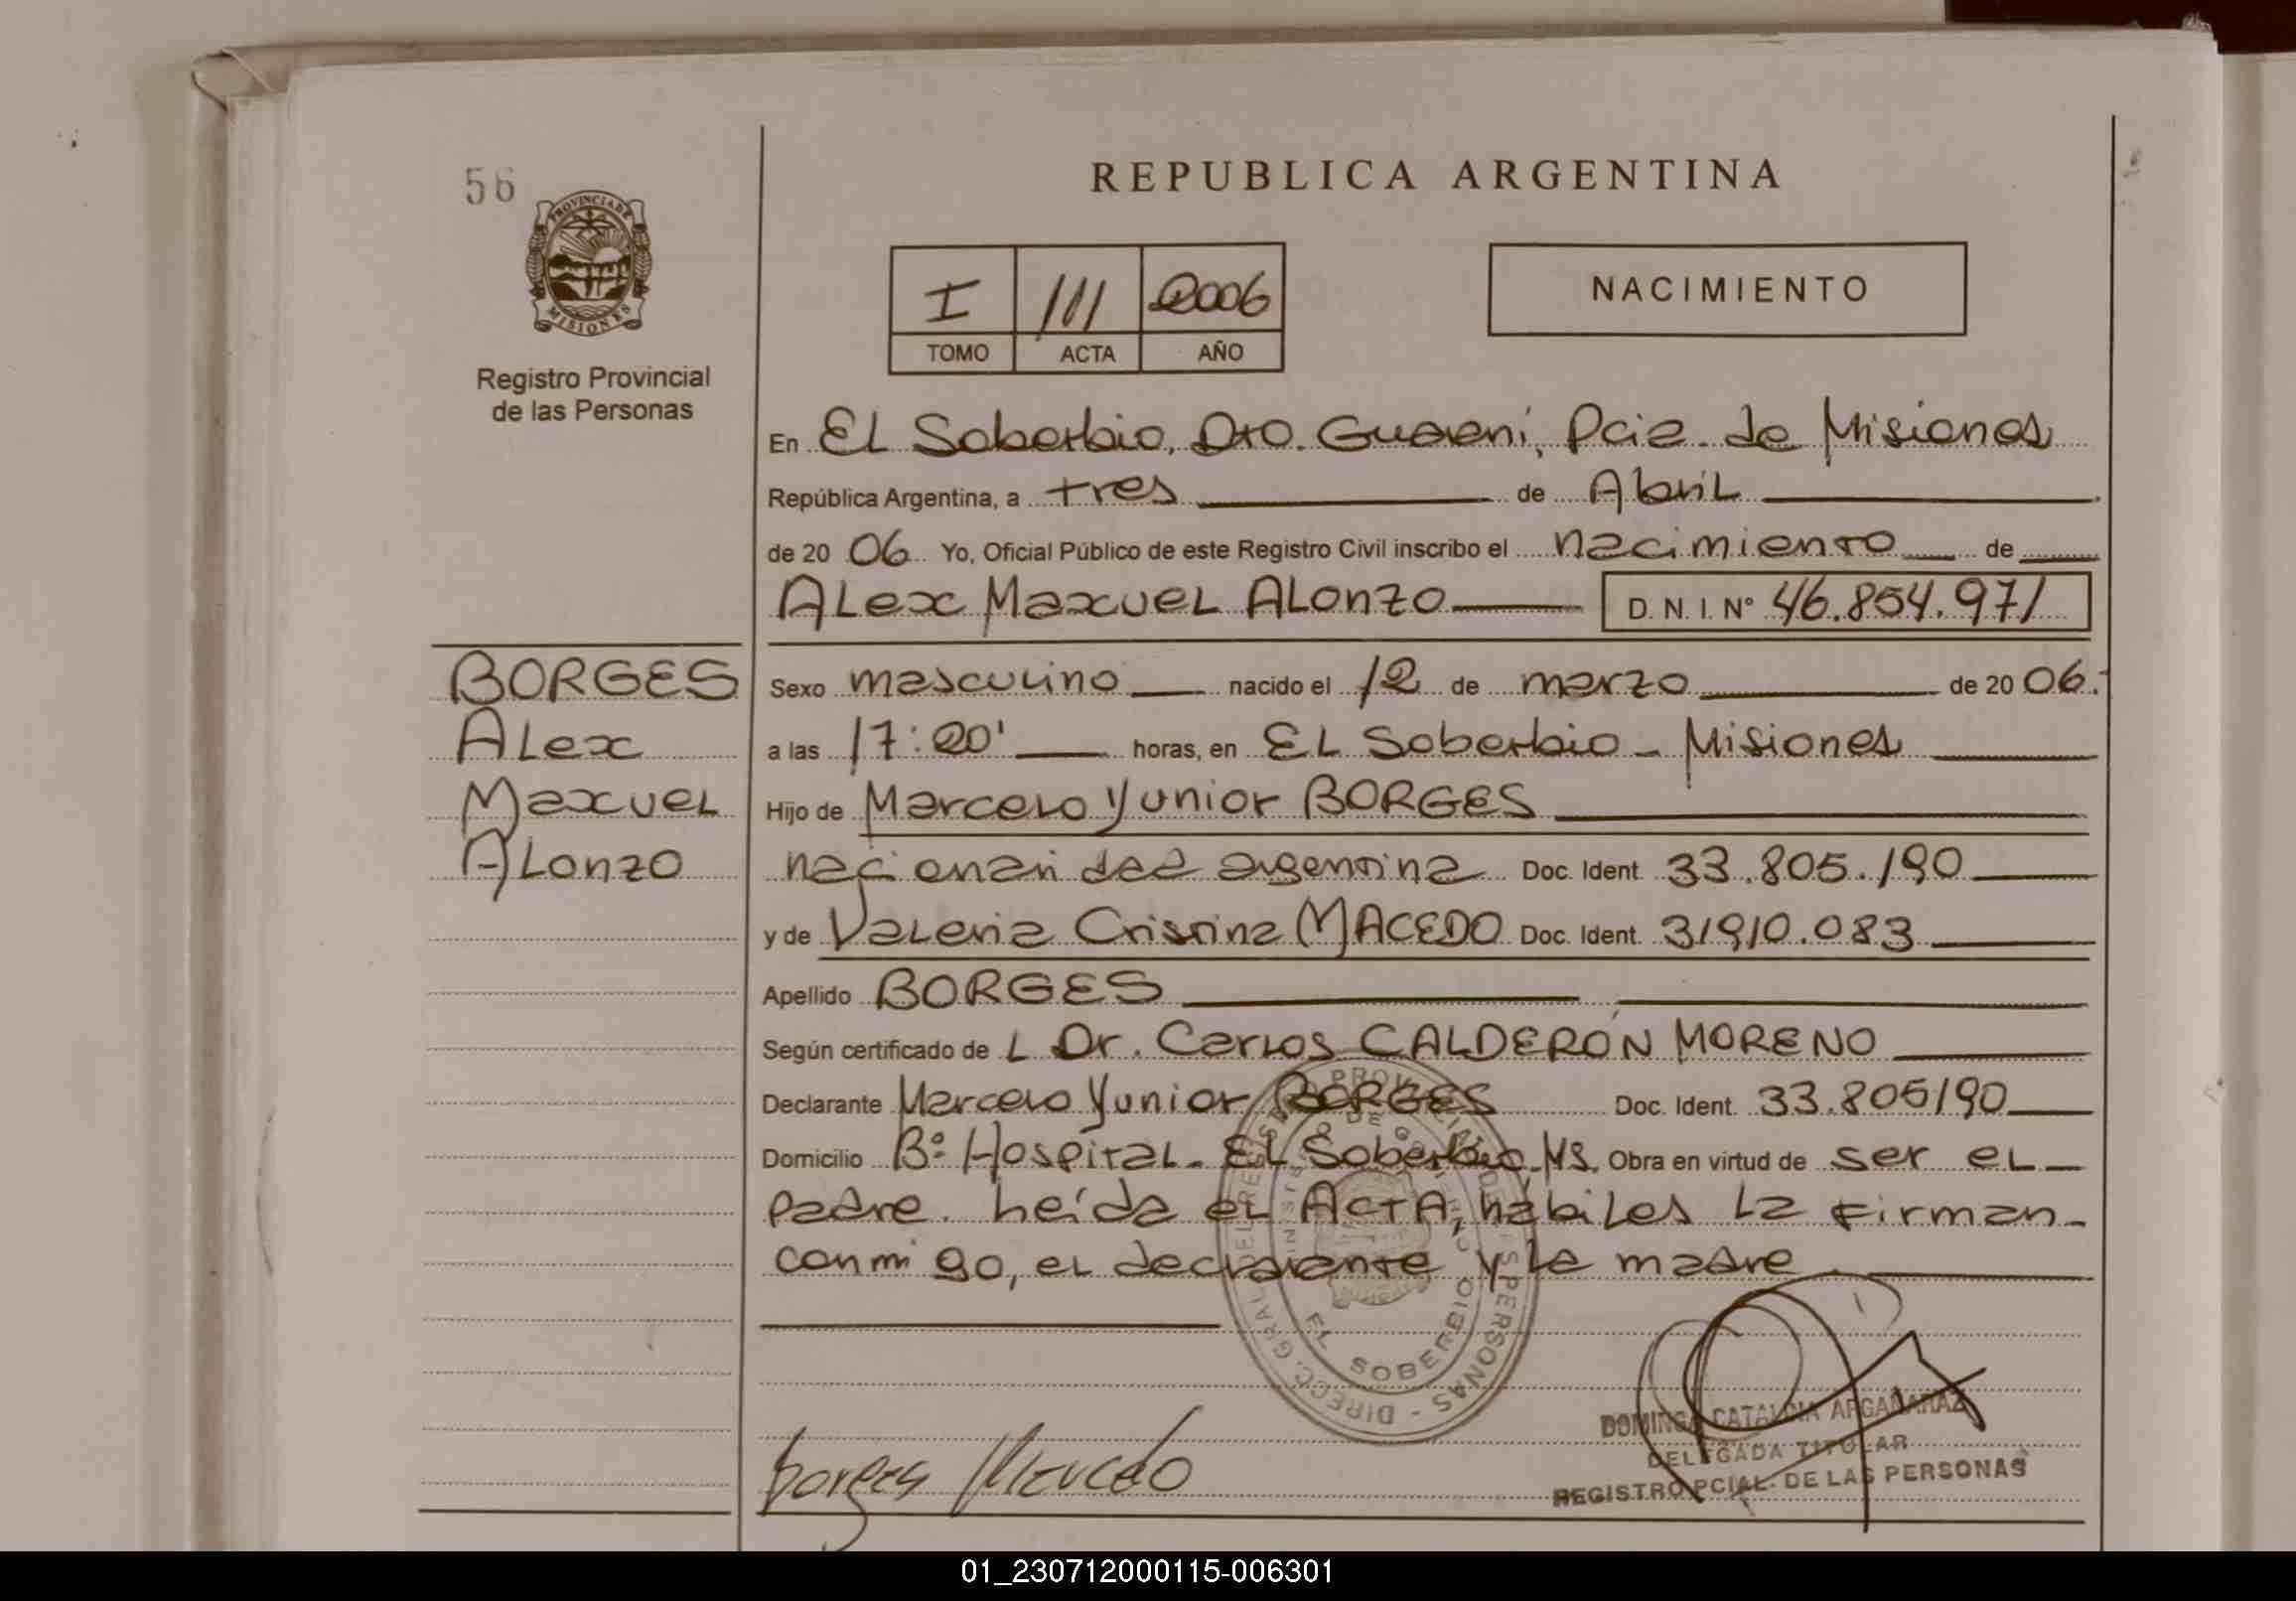 56
PROVINCIA DE
MISIONES
Registro Provincial
de las Personas
REPUBLICA ARGENTINA
I 111 2006
TOMO ACTA AÑO
NACIMIENTO
En El Soberbio, Dto. Guarani, Pcia. de Misiones
República Argentina, a tres de Abril
de 2006 Yo, Oficial Público de este Registro Civil inscribo el nacimiento de
Alex Maxuel Alonzo D. N. I. Nº 46.854.971
BORGES
Alex
Maxuel
Alonzo
Sexo masculino nacido el 12 de marzo de 2006.
a las 17:20' horas, en El Soberbio - Misiones
Hijo de Marcelo Yunior BORGES
nacionalidad argentina Doc. Ident. 33.805.190
y de Valeria Cristina MACEDO Doc. Ident. 31910.083
Apellido BORGES
Según certificado de L Dr. Carlos CALDERÓN MORENO
Declarante Marcelo Yunior BORGES Doc. Ident. 33.805190
Domicilio Bº Hospital - El Soberbio - Ms. Obra en virtud de ser el
padre. Leída el ACTA, hábiles la firman
conmigo, el declarante y la madre.
EL SOBERBIO
Borges Marcelo
DOMINGA CATALINA ARGAÑARAZ
DELEGADA TITULAR
REGISTRO PCIAL. DE LAS PERSONAS
01_230712000115-006301